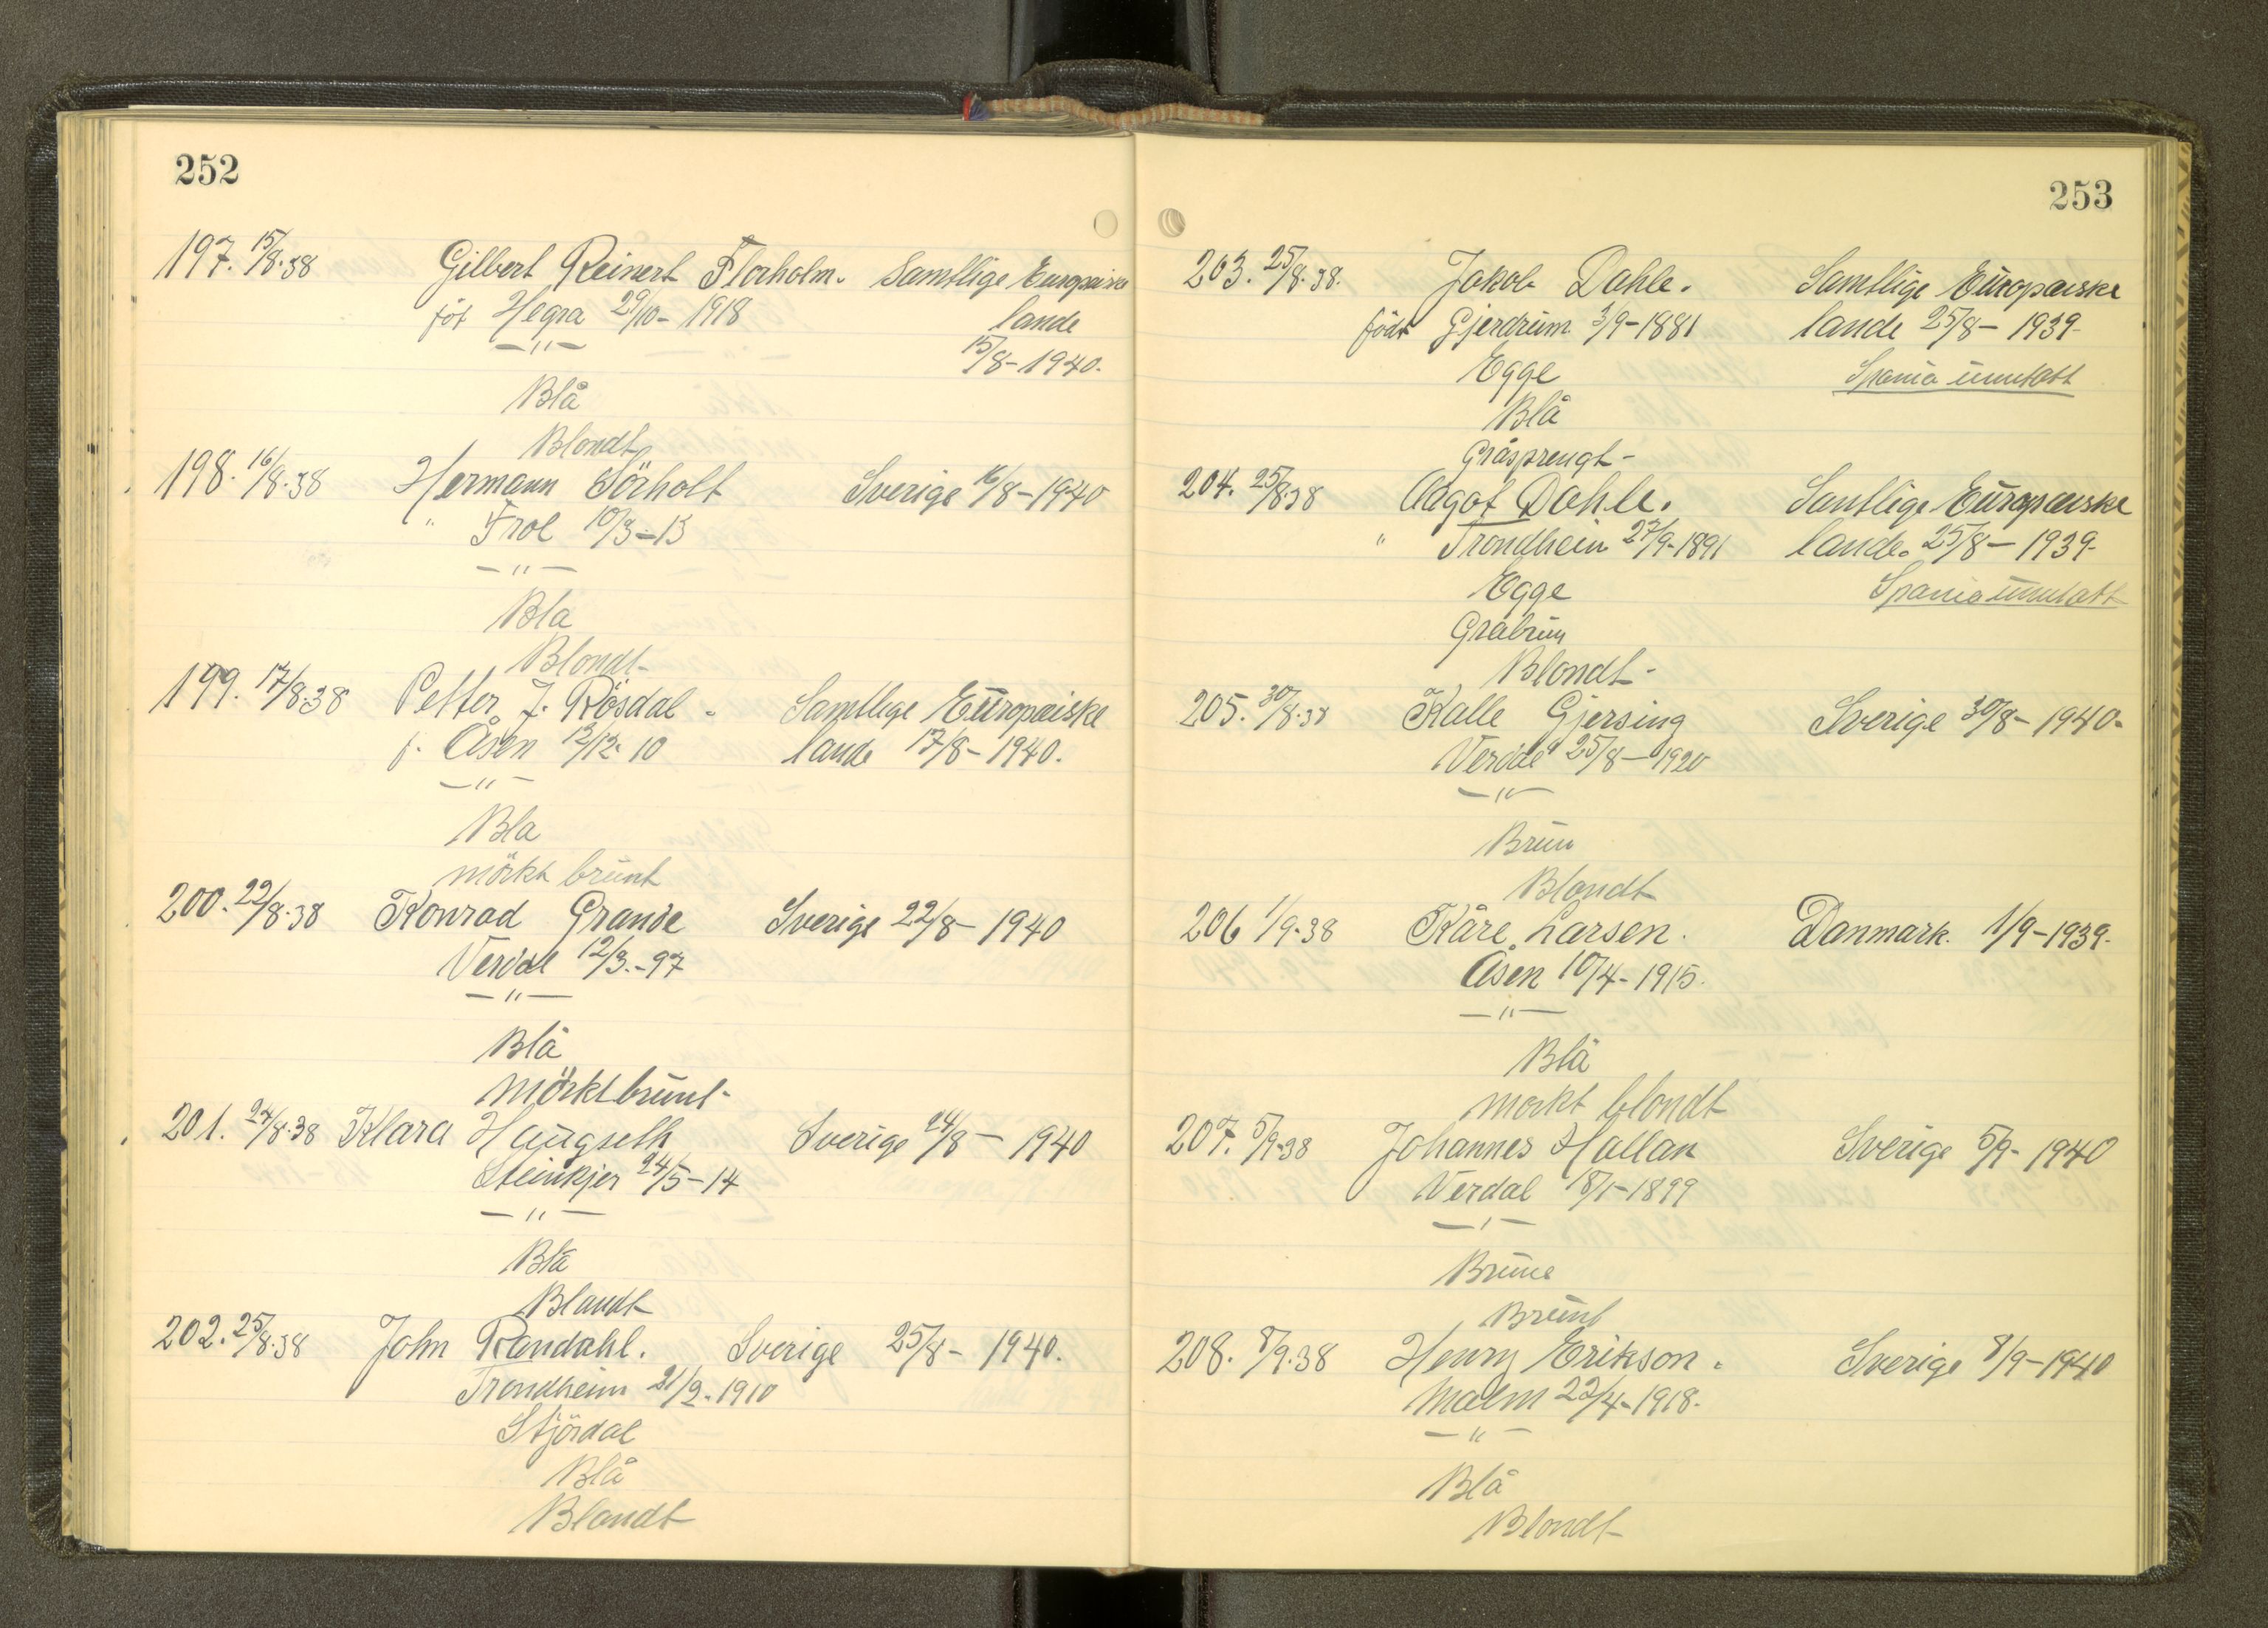 252
197. 15/8.38 Gilbert Reinert Florholm. Samtlige Europeiske
föt Hegra 29/10- 1918 lande
—"— 15/8-1940.
Blå
Blondt
198. 16/8.38 Hermann Sörholt Sverige 16/8-1940
" Frol 10/3-13
—"—
Bla
Blondt
199. 17/8.38 Petter J. Rösdal. Samtlige Europæiske
f. Åsen 12/12-10 lande 17/8-1940.
—"—
Bla
mörkt brunt
200. 22/8.38 Konrad Grande Sverige 22/8-1940
Verdal 12/3.-97
—"—
Blå
Mörkt brunt-
201. 24/8.38 Klara Haugseth Sverige 24/8-1940
Steinkjer 24/5-14
—"—
Blå
Blandt
202. 25/8.38 John Randahl. Sverige 25/8- 1940.
Trondheim 21/2-1910
Stjördal
Blå
Blandt
253
203. 25/8.38. Jakob Dahle. Samtlige Europæiske
födt Gjerdrum 3/9-1881 lande 25/8-1939-
Egge Spania unntatt
Blå
Gråsprengt-
204. 25/8.38 Aagot Dahle. Samtlige Europæiske
" Trondheim 27/9-1891 lande. 25/8-1939-
Egge Spania unntatt
Gråbrun
Blondt-
205. 30/8.38 Kalle Gjersing Sverige 30/8-1940-
Verdal 25/8-1920
—"—
Brun
Blondt
206 1/9-38 Kåre Larsen. Danmark. 1/9-1939-
Åsen 10/4-1915.
—"—
Blå
morkt blondt
207. 5/9-38 Johannes Hallan Sverige 5/9-1940
Verdal 18/1-1899
—'—
Brune
Brunt
208. 8/9.38 Henry Erikson. Sverige 8/9-1940
Malm 22/4-1918.
—"—
Blå
Blondt